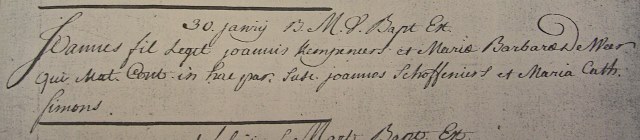 30 janrij B. M. V. Bapt Est.
Joannes fil Legit joannis Kempeniers et Mariæ Barbaræ De Meer
qui Mat. Cont. in hac par. Susc. joannes Schoffeniers et Maria Cath.
Simons.
Bapt. Est.